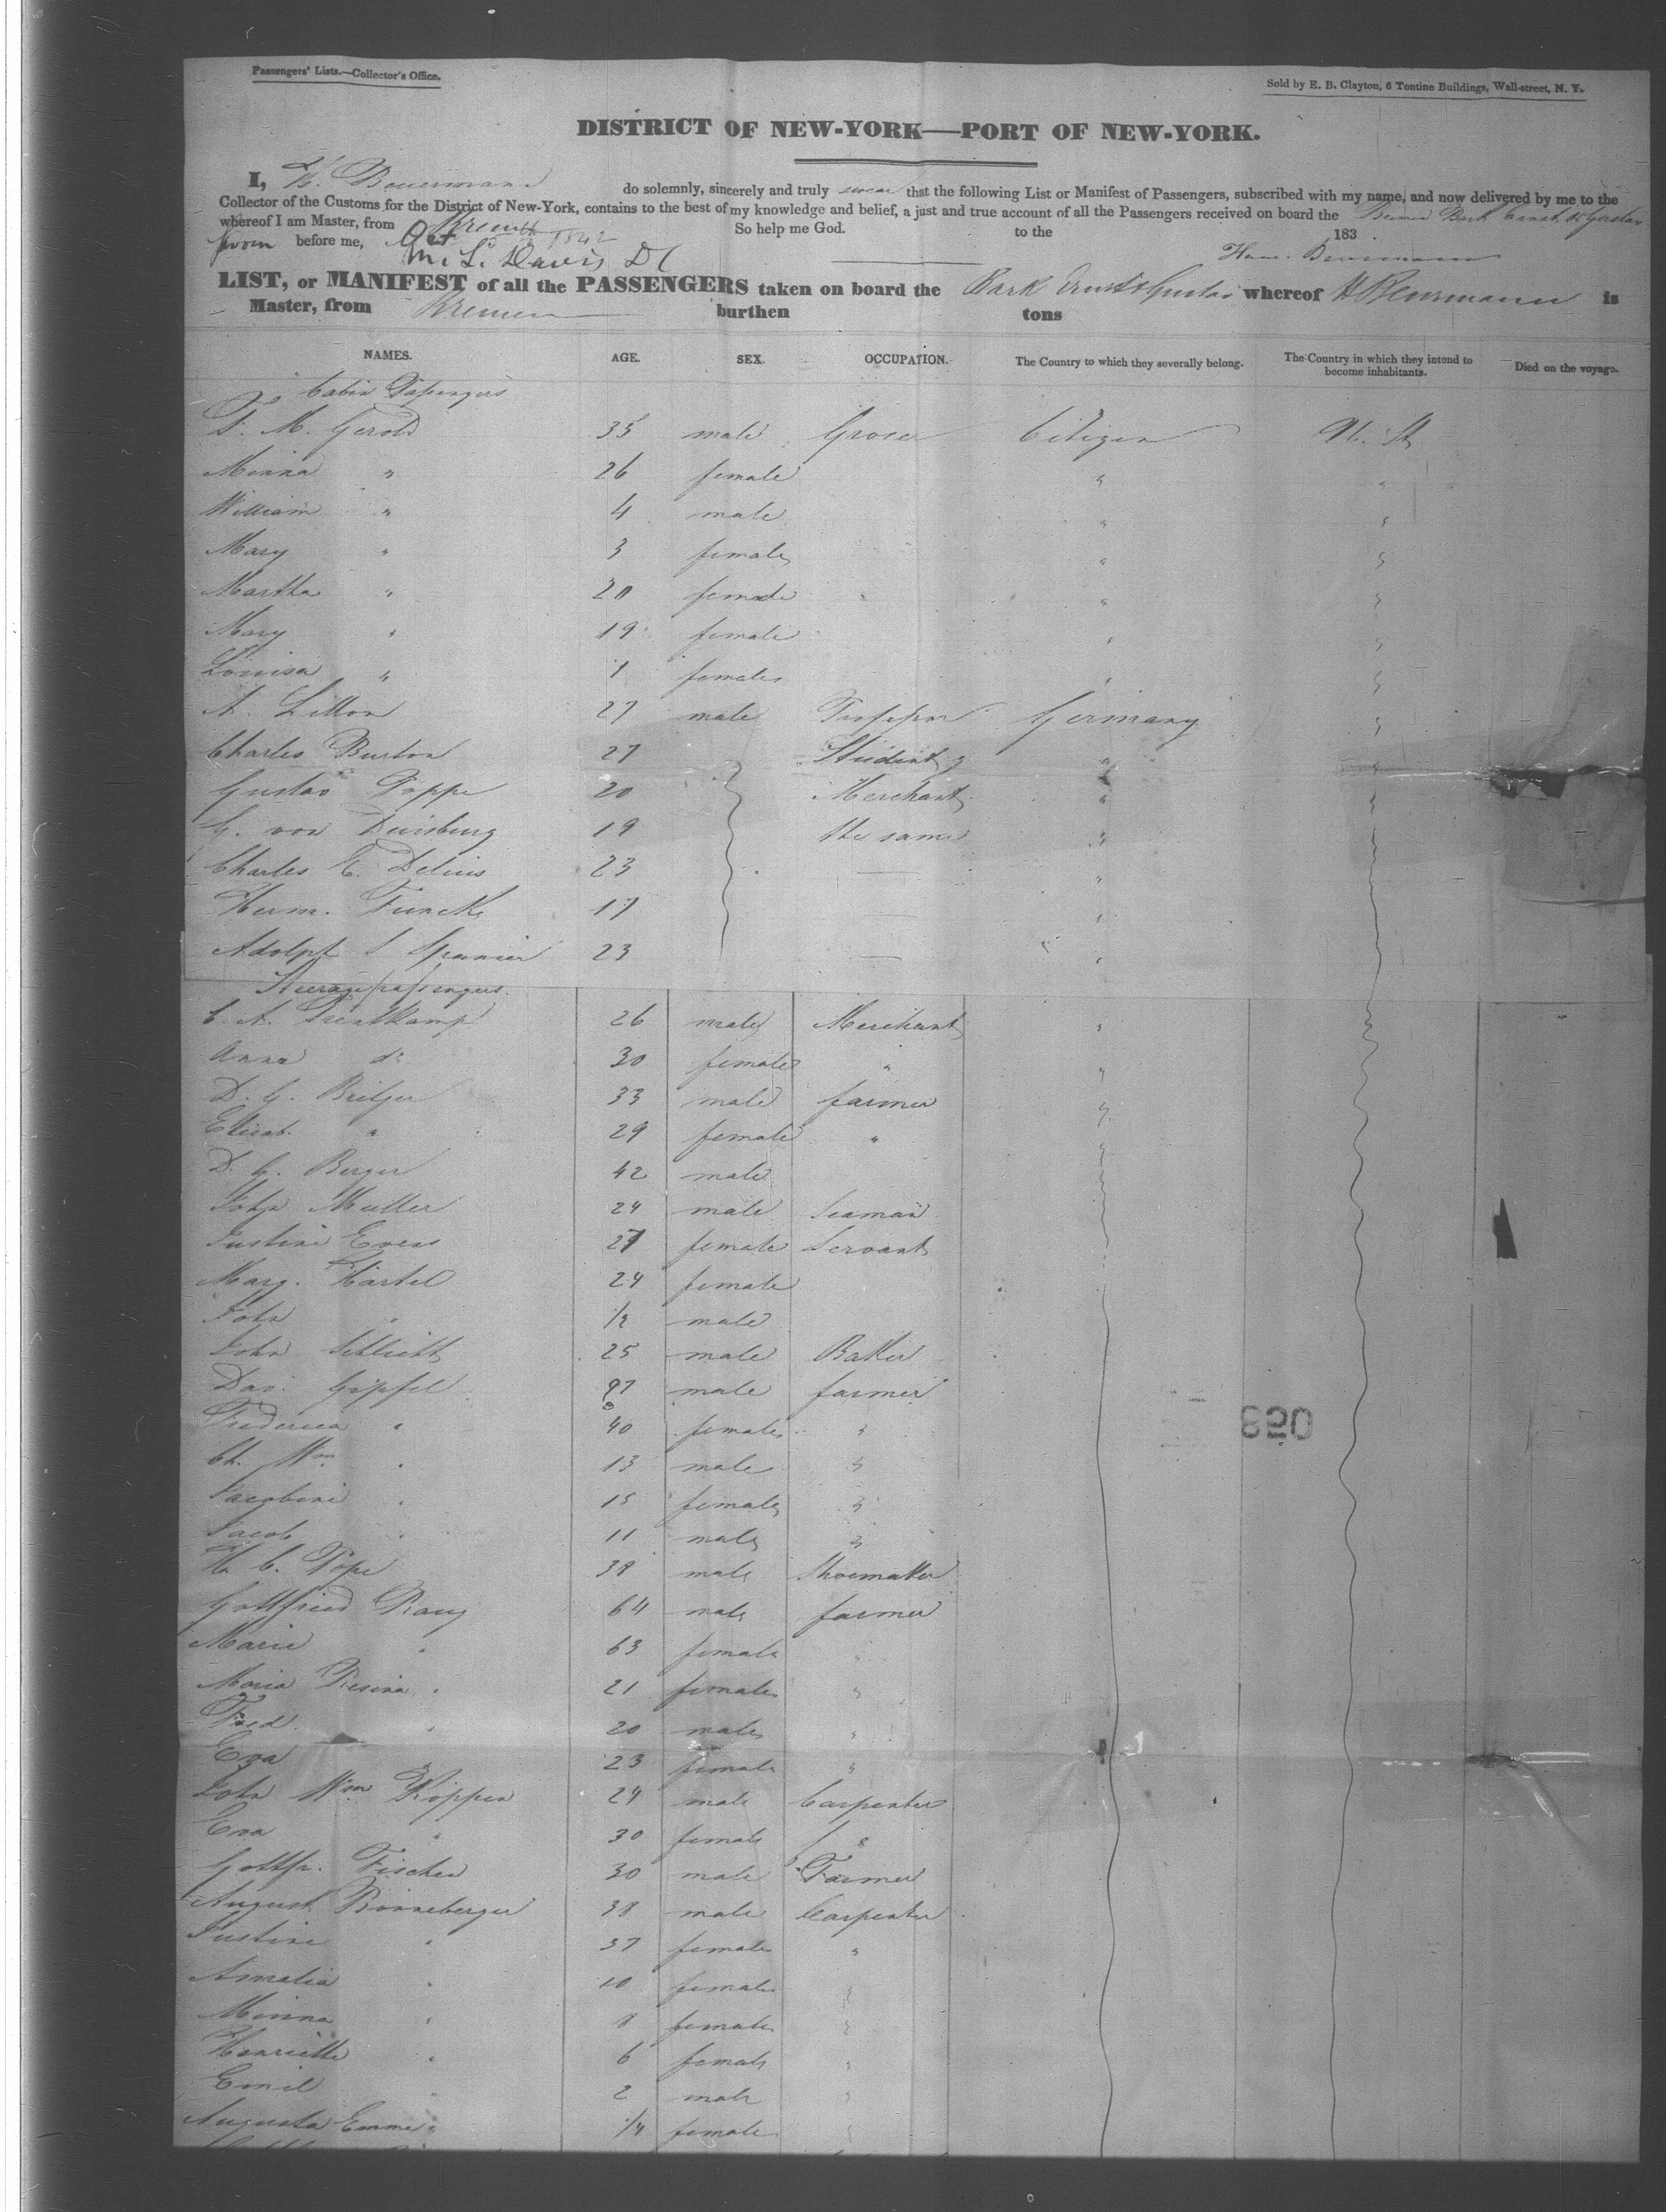 Passengers' Lists.—Collector's Office.
Sold by E. B. Clayton, 6 Tontine Buildings, Wall-street, N. Y.
DISTRICT OF NEW-YORK—PORT OF NEW-YORK.
I, H. Beuermann do solemnly, sincerely and truly swear that the following List or Manifest of Passengers, subscribed with my name, and now delivered by me to the
Collector of the Customs for the District of New-York, contains to the best of my knowledge and belief, a just and true account of all the Passengers received on board the Bremen Bark Ernst & Gustav
whereof I am Master, from Bremen to the 183 .
So help me God.
Sworn before me, Oct 1842
M. L. Davis D C
LIST, or MANIFEST of all the PASSENGERS taken on board the Bark Ernst & Gustav whereof H Beurmann is
Master, from Bremen burthen tons
NAMES. AGE. SEX. OCCUPATION. The Country to which they severally belong. The Country in which they intend to become inhabitants. Died on the voyage.
Cabin Passengers
F. M. Gerold 35 male Grocer Citizen U. St
Minna " 26 female " "
William " 4 male " "
Mary " 3 female " "
Martha " 20 female " "
Mary " 19 female " "
Louisa " 1 female " "
A. 27 male Professor Germany "
Charles Burton 27 Student " "
Gustav Poppe 20 Merchant " "
G. von Duisburg 19 the same "
Charles E. Delius 23 — "
Herm. Funck 17 "
Adolph S Spanier 23 — "
Steerage passengers.
C. A. Trentkamp 26 male Merchant "
Anna do 30 female "
D. G. 33 male farmer "
Elisab. " 29 female "
D. G. Berger 42 male
John Muller 24 male Seaman
Justine Evers 27 female Servant
Marg. Härtel 24 female
John " 1/2 male
John Schlicht 25 male Baker
Dav. Gipfel male farmer
Frederica " 40 female "
Ch. Wm " 13 male "
Jacobine " 15 female "
Jacob " 11 male "
H. C. Pope 38 male Shoemaker
Gottfried 64 male farmer
Marie " 63 female "
Maria Rosina " 21 female "
Fred. " 20 male "
Eva " 23 female "
John Wm Köppen 24 male Carpenter
Eva " 30 female "
Gottfr. Fischer 30 male Farmer
August Bonneberger 38 male Carpenter
Justine " 37 female "
Amalia " 10 female "
Minna " 8 female "
Henriette " 6 female "
Emil " 2 male "
Augusta Emma " 1/4 female "
850